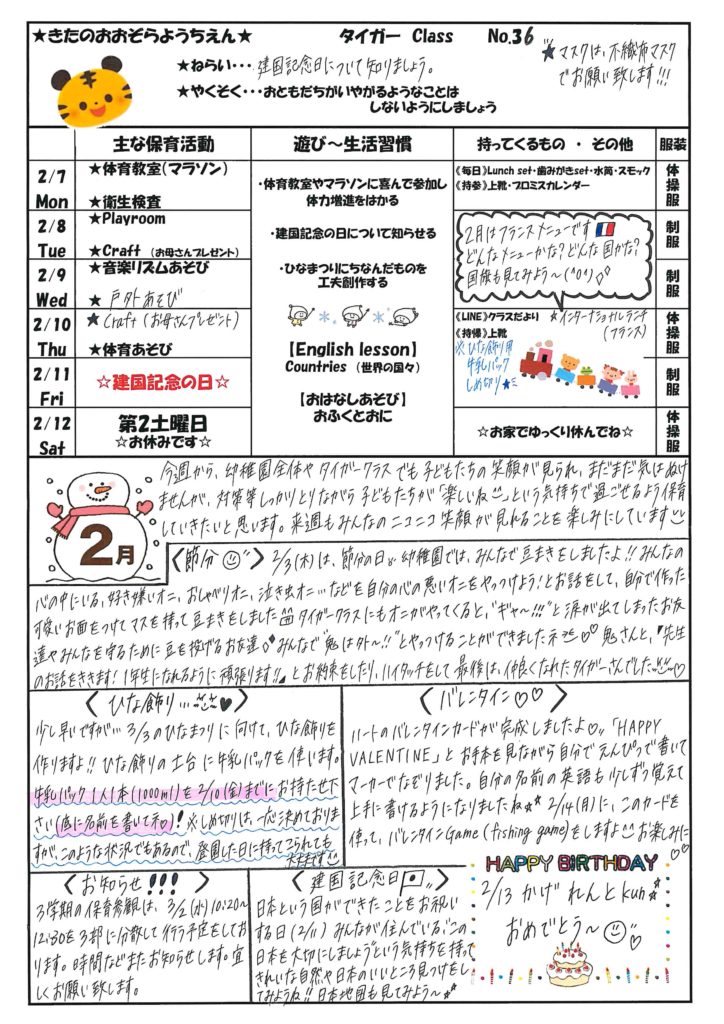 ★きたのおおぞらようちえん★ タイガー Class No.36
★マスクは、不織布マスク
でお願い致します!!!
★ねらい・・・建国記念日について知りましょう。
★やくそく・・・おともだちがいやがるようなことは
しないようにしましょう
主な保育活動 遊び～生活習慣 持ってくるもの ・ その他 服装
2/7
Mon
★体育教室(マラソン)
★衛生検査
2/8
Tue
★Playroom
★Craft (お母さんプレゼント)
2/9
Wed
★音楽リズムあそび
★戸外あそび
2/10
Thu
★Craft (お母さんプレゼント)
★体育あそび
2/11
Fri
☆建国記念の日☆
2/12
Sat
第2土曜日
☆お休みです☆
・体育教室やマラソンに喜んで参加し
体力増進をはかる
・建国記念の日について知らせる
・ひなまつりにちなんだものを
工夫創作する
【English lesson】
Countries (世界の国々)
【おはなしあそび】
おふくとおに
《毎日》Lunch set・歯みがきset・水筒・スモック
《持参》上靴・プロミスカレンダー
2月はフランスメニューです
どんなメニューかな?どんな国かな?
国旗も見てみよう～(^o^)
《LINE》クラスだより ☆インターナショナルランチ
(フランス)
《持帰》上靴
※ひな飾り用
牛乳パック
しめ切り★
☆お家でゆっくり休んでね☆
体操服
制服
制服
体操服
制服
体操服
2月
今週から、幼稚園全体やタイガークラスでも子どもたちの笑顔が見られ、まだまだ気はぬけ
ませんが、対策等しっかりとりながら子どもたちが"楽しいね"という気持ちで過ごせるよう保育
していきたいと思います。来週もみんなのニコニコ笑顔が見れることを楽しみにしています
〈節分〉 2/3(木)は、節分の日。幼稚園では、みんなで豆まきをしましたよ!!みんなの
心の中にいる、好き嫌いオニ、おしゃべりオニ、泣き虫オニ…などを自分の心の悪いオニをやっつけよう!とお話をして、自分で作った
可愛いお面をつけてマスを持って豆まきをしました タイガークラスにもオニがやってくると、"ギャ～!!!"と涙が出てしまったお友
達やみんなを守るために豆を投げるお友達 みんなで"鬼は外～!!"とやっつけることができましたネ 鬼さんと、『先生
のお話をききます!1年生になれるように頑張ります!!』とお約束をしたり、ハイタッチをして最後は、仲良くなれたタイガーさんでした
〈ひな飾り…〉
少し早いですが… 3/3のひなまつりに向けて、ひな飾りを
作りますよ!! ひな飾りの土台に牛乳パックを使います。
牛乳パック1人1本(1000ml)を2/10(金)までにお持たせ下
さい(底に名前を書いてネ♡)! ※しめ切りは、一応決めておりま
すが、このような状況でもあるので、登園した日に持ってこられても
大丈夫です
〈バレンタイン♡♡〉
ハートのバレンタインカードが完成しましたよ♡。「HAPPY
VALENTINE」とお手本を見ながら自分でえんぴつで書いて
マーカーでなぞりました。自分の名前の英語も少しずつ覚えて
上手に書けるようになりましたね★★ 2/14(月)に、このカードを
使って、バレンタインGame(fishing game)をしますよ お楽しみに♡♡
〈お知らせ!!!〉
3学期の保育参観は、3/2(水)10:20～
12:30を3部に分散して行う予定をしてお
ります。時間などまたお知らせします。宜し
くお願い致します。
〈建国記念日〉
日本という国ができたことをお祝い
する日(2/11) みんなが住んでいる"この
日本を大切にしましょう"という気持ちを持って
きれいな自然や日本のいいところ見つけをし
てみようね!!日本地図も見てみよう～★
HAPPY BiRTHDAY
2/13 かげ れんとkun
おめでとう～